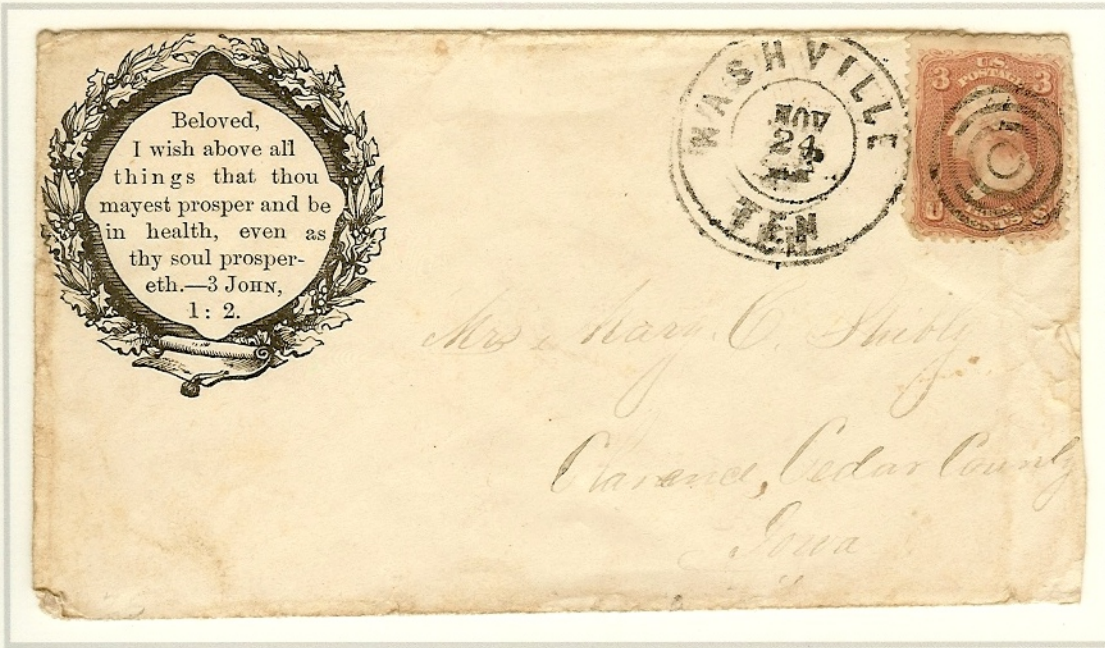 Beloved,
I wish above all
things that thou
mayest prosper and be
in health, even as
thy soul prosper-
eth.—3 JOHN,
1: 2.
NASHVILLE
NOV
24
TEN
3 U.S. 3
POSTAGE
CENTS
Mrs. Mary C. Shibly
Clarence, Cedar County
Iowa